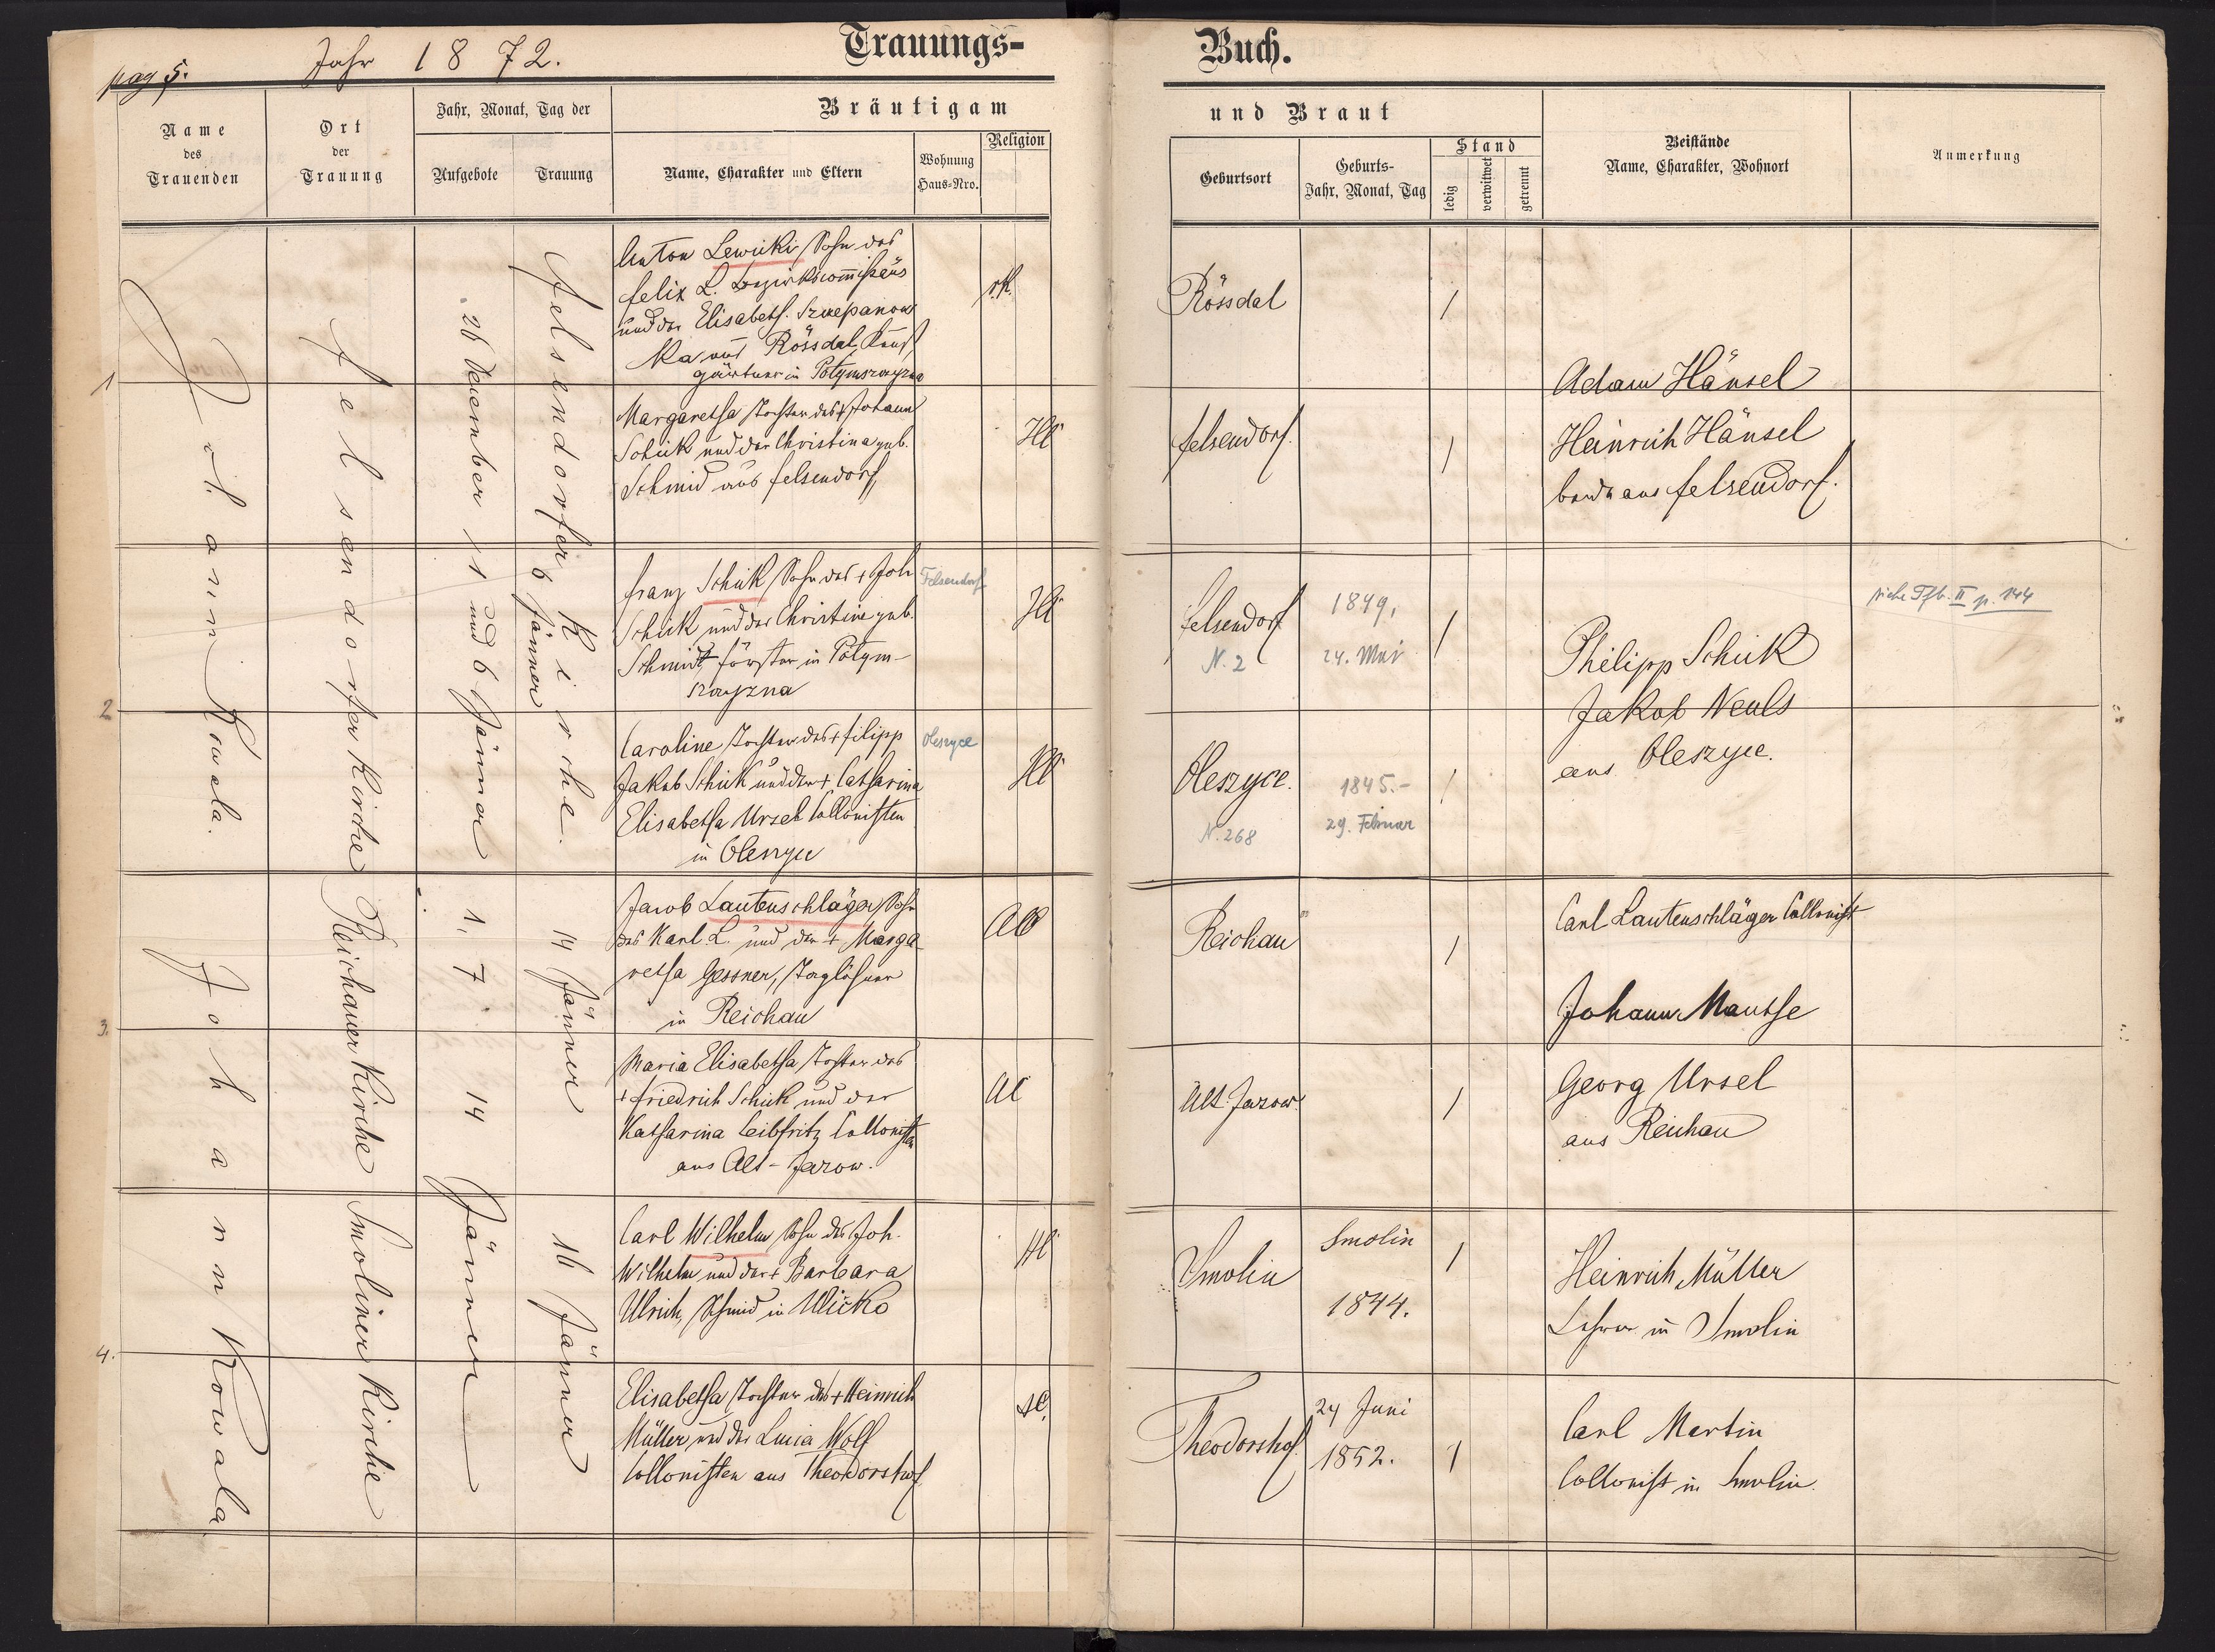 pag 5.
Jahr 1872.
Trauungs-
Buch.
Name
des
Trauenden
Ort
der
Trauung
Jahr, Monat, Tag der
Aufgebote
Trauung
Bräutigam
Name, Charakter und Eltern
Wohnung
Haus-Nro.
Religion
und Braut
Geburtsort
Geburts-
Jahr, Monat, Tag
Stand
ledig
verwitwet
getrennt
Beistände
Name, Charakter, Wohnort
Anmerkung
1
Johann Kowala.
Felsendorfer Kirche
26 Dezember 1 und 6 Jänner
Felsendorfer Kirche.
6 Jänner
Anton Lewicki, Sohn des
Felix L. Bezirkscom̄issärs
und der Elisabeth. Szczepanow
ka aus Rössdal, Kunst
gärtner in
r.K.
Rössdal
/
Margaretha Tochter des + Johann
Schick und der Christina geb.
Schmid aus Felsendorf
HC
Felsendorf.
/
Adam Hänsel
Heinrich Hänsel
beide aus Felsendorf.
2
Franz Schick, Sohn des + Joh
Schick und der Christine geb.
Schmidt, Förster in
Felsendorf
HC
Felsendorf
N. 2
1849,
24. Mai
/
siehe Tfb. II p. 144
Caroline Tochter des + Filipp
Jakob Schick und der + Catharina
Elisabetha Ursel Collonisten
in Oleszyce
Oleszyce
HC
Oleszyce.
N. 268
1845.-
29. Februar
/
Philipp Schick
Jakob Neuls
aus Oleszyce.
3.
Johann Kowala
Reichauer Kirche
1, 7. 14 Jänner
14 Jänner
Jacob Lautenschläger, Sohn
des Karl L. und der + Marga
retha Gessner, Taglöhner
in Reichau
AC
Reichau
/
Carl Lautenschläger Collonist
Johann Mauthe
Maria Elisabetha Tochter des
+ Friedrich Schick und der
Katharina Leibfritz Collonisten
aus Alt-Jazow.
AC
Alt Jazow.
/
Georg Ursel
aus Reichau
4.
Smoliner Kirche
16 Jänner
Carl Wilhelm, Sohn des Joh.
Wilhelm und der + Barbara
Ulrich, Schmid in Ulicko
HC
Smolin
Smolin
1844.
/
Heinrich Müller
Lehrer in Smolin
Elisabetha Tochter des + Heinrich
Müller und der Lucia Wolf
Collonisten aus Theodorshof
AC.
Theodorshof.
24 Juni
1852.
1
Carl Martin
Collonist in Smolin.